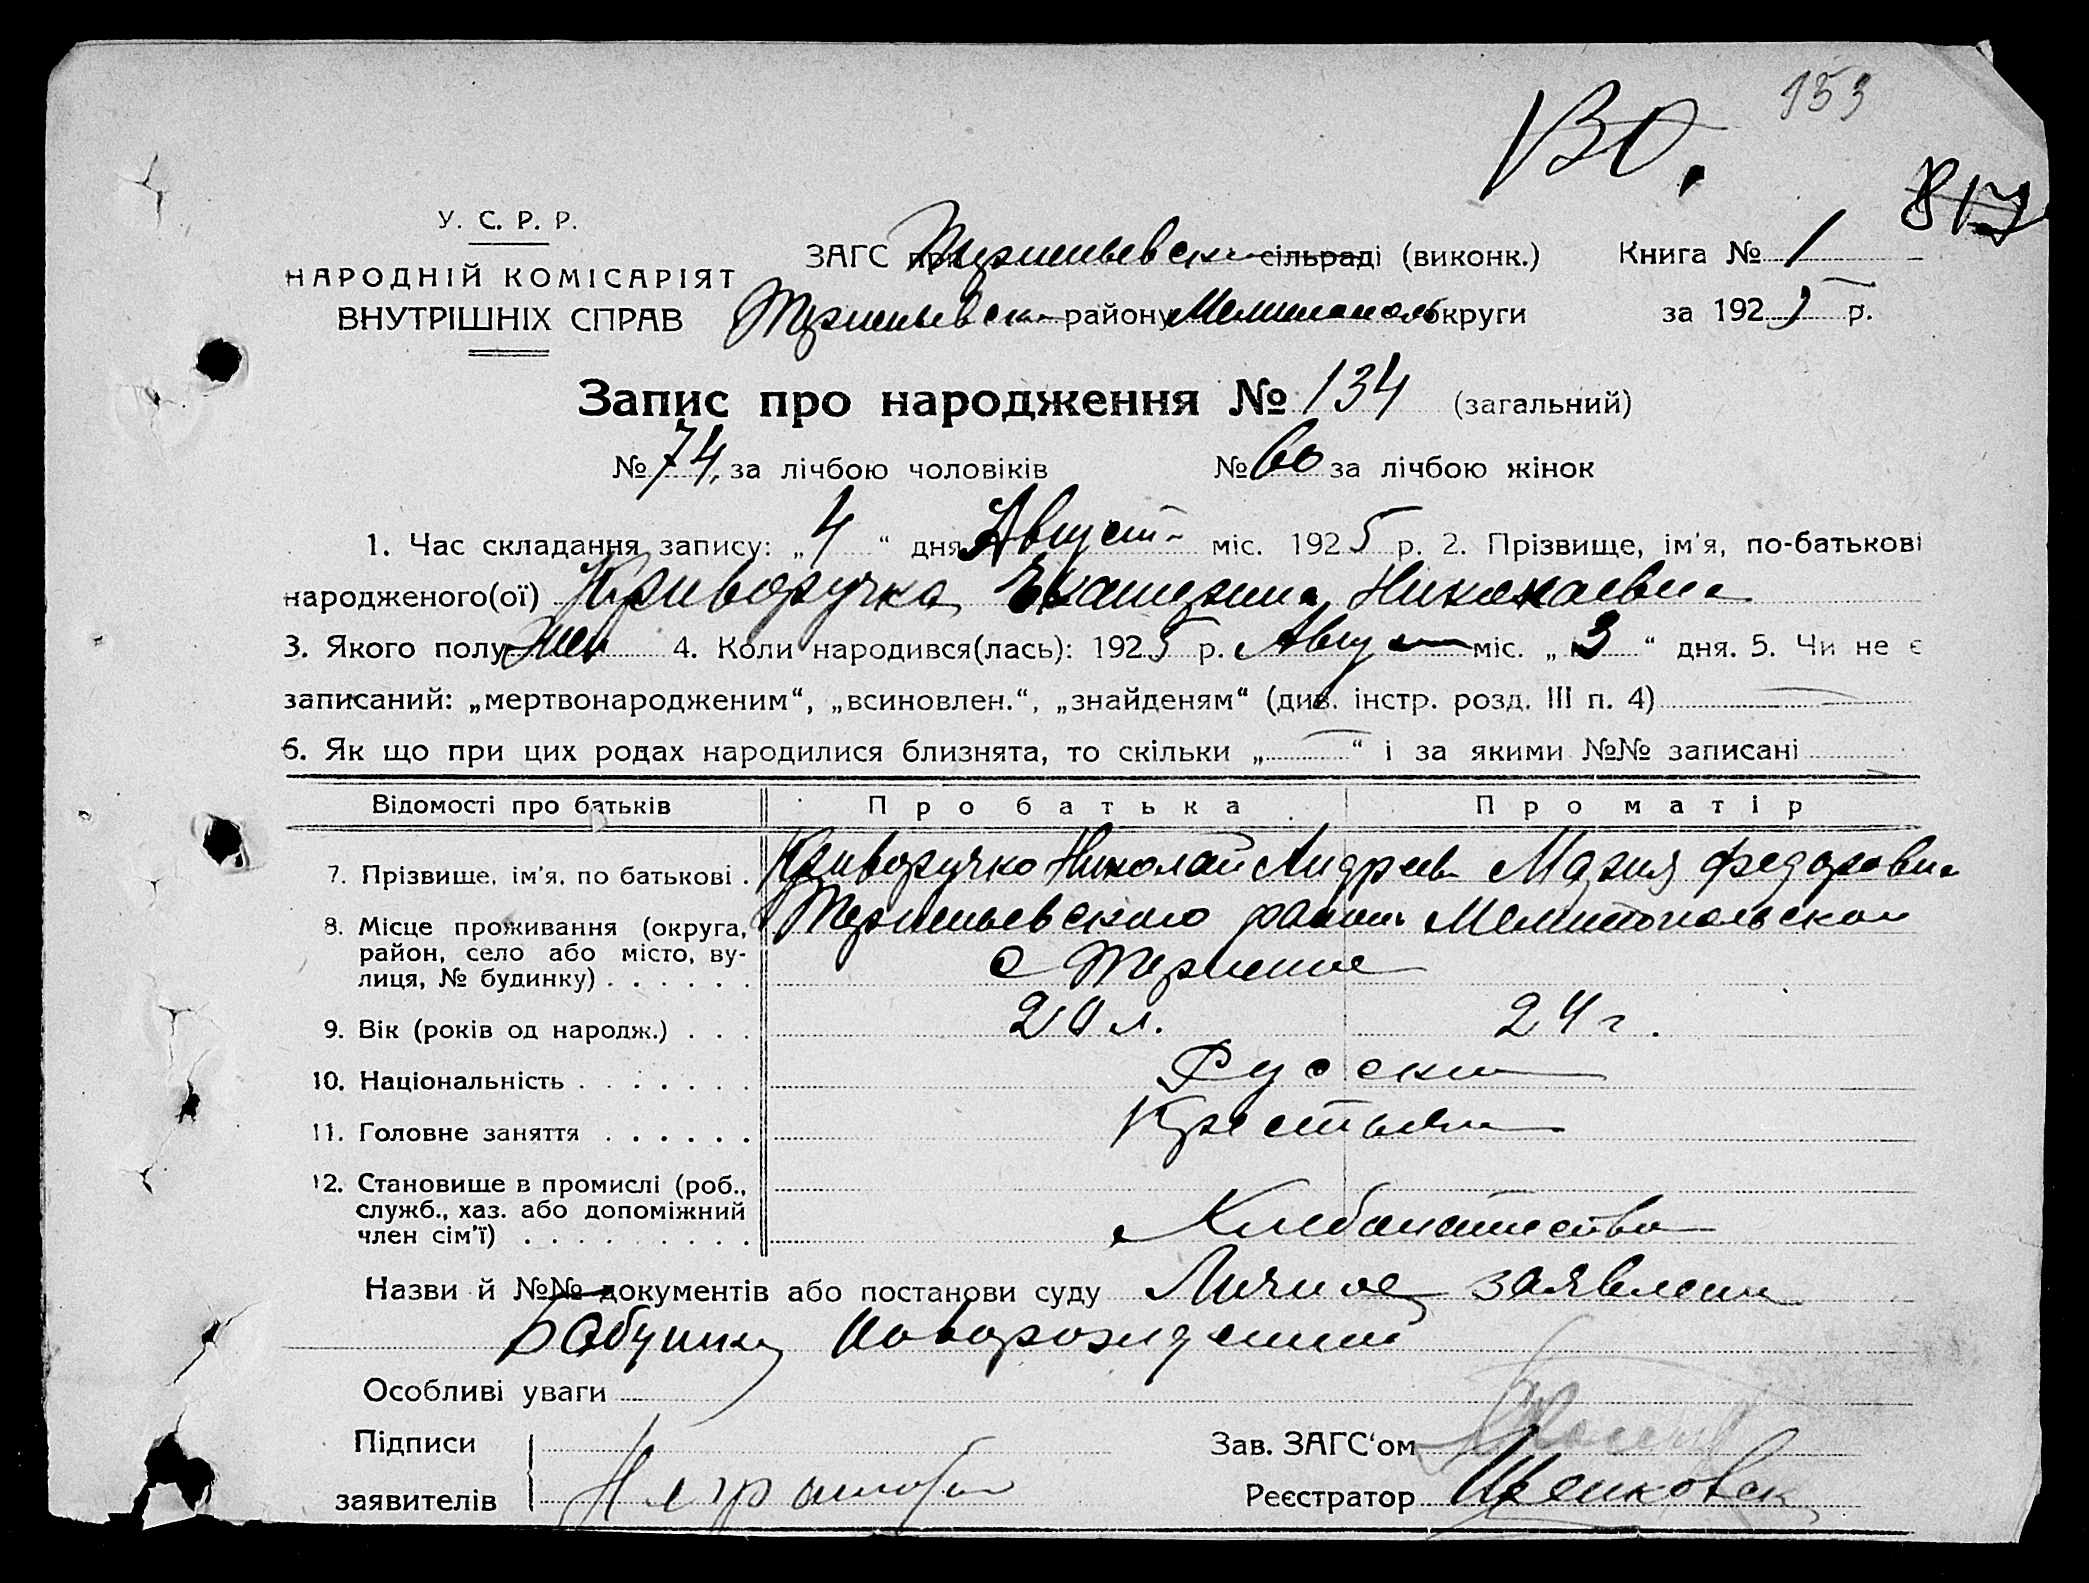 153
ВО.
817
У. С. Р. Р.
НАРОДНІЙ КОМІСАРІЯТ
ВНУТРІШНІХ СПРАВ
ЗАГС при Терпеньевск сільраді (виконк.) Книга № 1
Терпеньевск району Мелитополь округи за 1925 р.
Запис про народження № 134 (загальний)
№ 74, за лічбою чоловіків № 60 за лічбою жінок
1. Час складання запису: „4“ дня Август міс. 1925 р. 2. Прізвище, ім'я, по-батькові
народженого(ої) Криворучка Екатерина Николаевна
3. Якого полу жен 4. Коли народився(лась): 1925 р. Август міс. „3“ дня. 5. Чи не є
записаний: „мертвонародженим“, „всиновлен.“, „знайденям“ (див. інстр. розд. III п. 4)
6. Як що при цих родах народилися близнята, то скільки „ “ і за якими №№ записані
Відомості про батьків Про батька Про матір
7. Прізвище, ім'я, по батькові . Криворучко Николай Андреев Мария Федоровна
8. Місце проживання (округа, район, село або місто, вулиця, № будинку) . . . . . . Терпеньевского район Мелитопольской
с Терпенье
9. Вік (років од народж.) . . . 20 л. 24 г.
10. Національність . . . . . . . Русски
11. Головне заняття . . . . . . Крестьян
12. Становище в промислі (роб.,
служб., хаз. або допоміжний
член сім'ї) . . . . . . . . . Хлебопашество
Назви й №№ документів або постанови суду Личное заявлени
Бабушки новорожденной
Особливі уваги
Підписи
заявителів Неграмотна
Зав. ЗАГС'ом
Реєстратор